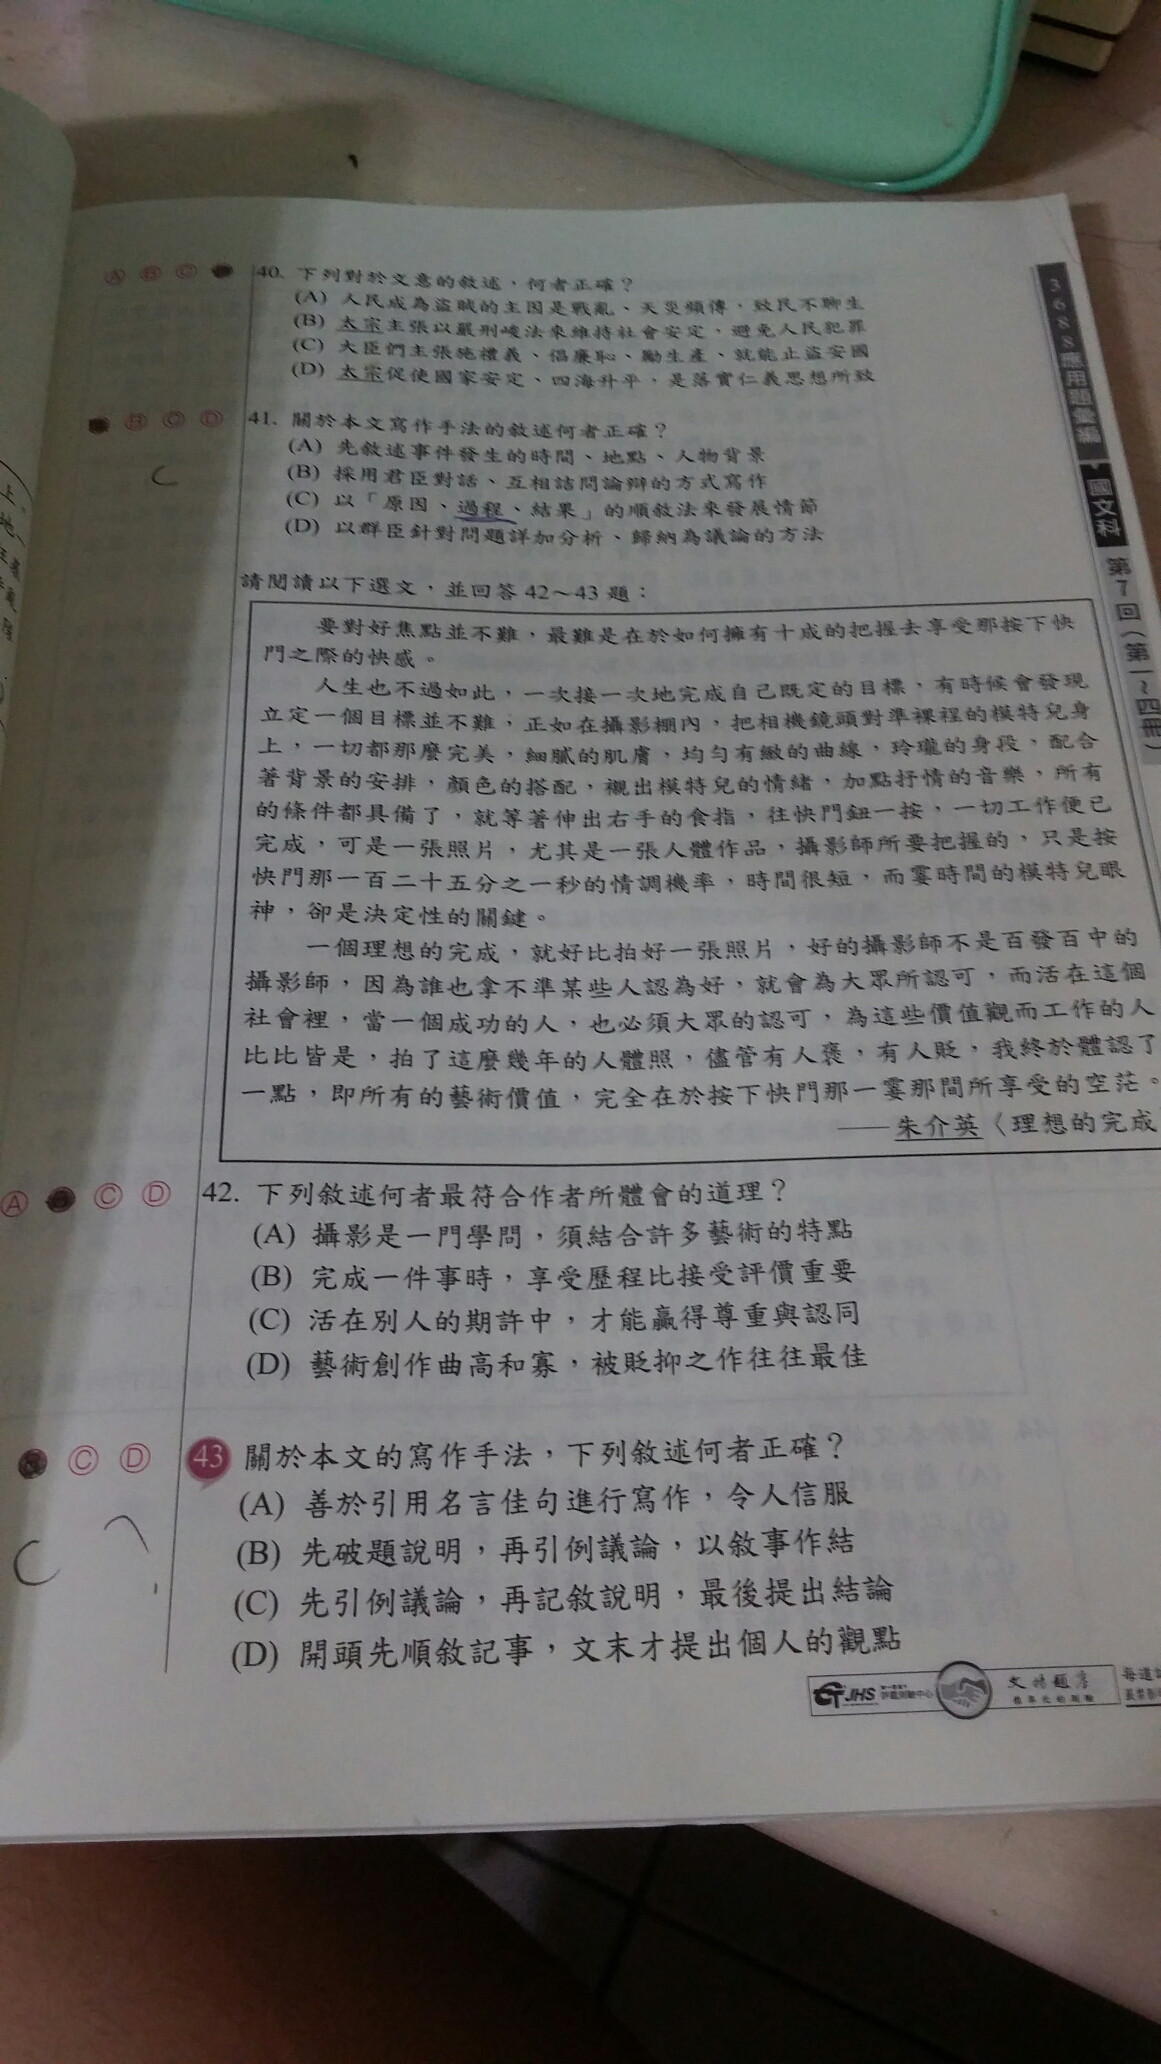 Ⓐ Ⓑ Ⓒ
40. 下列對於文意的敘述，何者正確？
(A) 人民成為盜賊的主因是戰亂、天災頻傳，致民不聊生
(B) 太宗主張以嚴刑峻法來維持社會安定，避免人民犯罪
(C) 大臣們主張施禮義、倡廉恥、勵生產、就能止盜安國
(D) 太宗促使國家安定、四海升平，是落實仁義思想所致
Ⓑ Ⓒ Ⓓ
C
41. 關於本文寫作手法的敘述何者正確？
(A) 先敘述事件發生的時間、地點、人物背景
(B) 採用君臣對話、互相詰問論辯的方式寫作
(C) 以「原因、過程、結果」的順敘法來發展情節
(D) 以群臣針對問題詳加分析、歸納為議論的方法
請閱讀以下選文，並回答 42～43 題：
要對好焦點並不難，最難是在於如何擁有十成的把握去享受那按下快
門之際的快感。
人生也不過如此，一次接一次地完成自己既定的目標，有時候會發現
立定一個目標並不難，正如在攝影棚內，把相機鏡頭對準裸裎的模特兒身
上，一切都那麼完美，細膩的肌膚，均勻有緻的曲線，玲瓏的身段，配合
著背景的安排，顏色的搭配，襯出模特兒的情緒，加點抒情的音樂，所有
的條件都具備了，就等著伸出右手的食指，往快門鈕一按，一切工作便已
完成，可是一張照片，尤其是一張人體作品，攝影師所要把握的，只是按
快門那一百二十五分之一秒的情調機率，時間很短，而霎時間的模特兒眼
神，卻是決定性的關鍵。
一個理想的完成，就好比拍好一張照片，好的攝影師不是百發百中的
攝影師，因為誰也拿不準某些人認為好，就會為大眾所認可，而活在這個
社會裡，當一個成功的人，也必須大眾的認可，為這些價值觀而工作的人
比比皆是，拍了這麼幾年的人體照，儘管有人褒，有人貶，我終於體認了
一點，即所有的藝術價值，完全在於按下快門那一霎那間所享受的空茫。
——朱介英〈理想的完成
Ⓐ Ⓒ Ⓓ
42. 下列敘述何者最符合作者所體會的道理？
(A) 攝影是一門學問，須結合許多藝術的特點
(B) 完成一件事時，享受歷程比接受評價重要
(C) 活在別人的期許中，才能贏得尊重與認同
(D) 藝術創作曲高和寡，被貶抑之作往往最佳
Ⓒ Ⓓ
C
43 關於本文的寫作手法，下列敘述何者正確？
(A) 善於引用名言佳句進行寫作，令人信服
(B) 先破題說明，再引例議論，以敘事作結
(C) 先引例議論，再記敘說明，最後提出結論
(D) 開頭先順敘記事，文末才提出個人的觀點
JHS
每道
3688應用題彙編
國文科
第7回（第一~四冊）